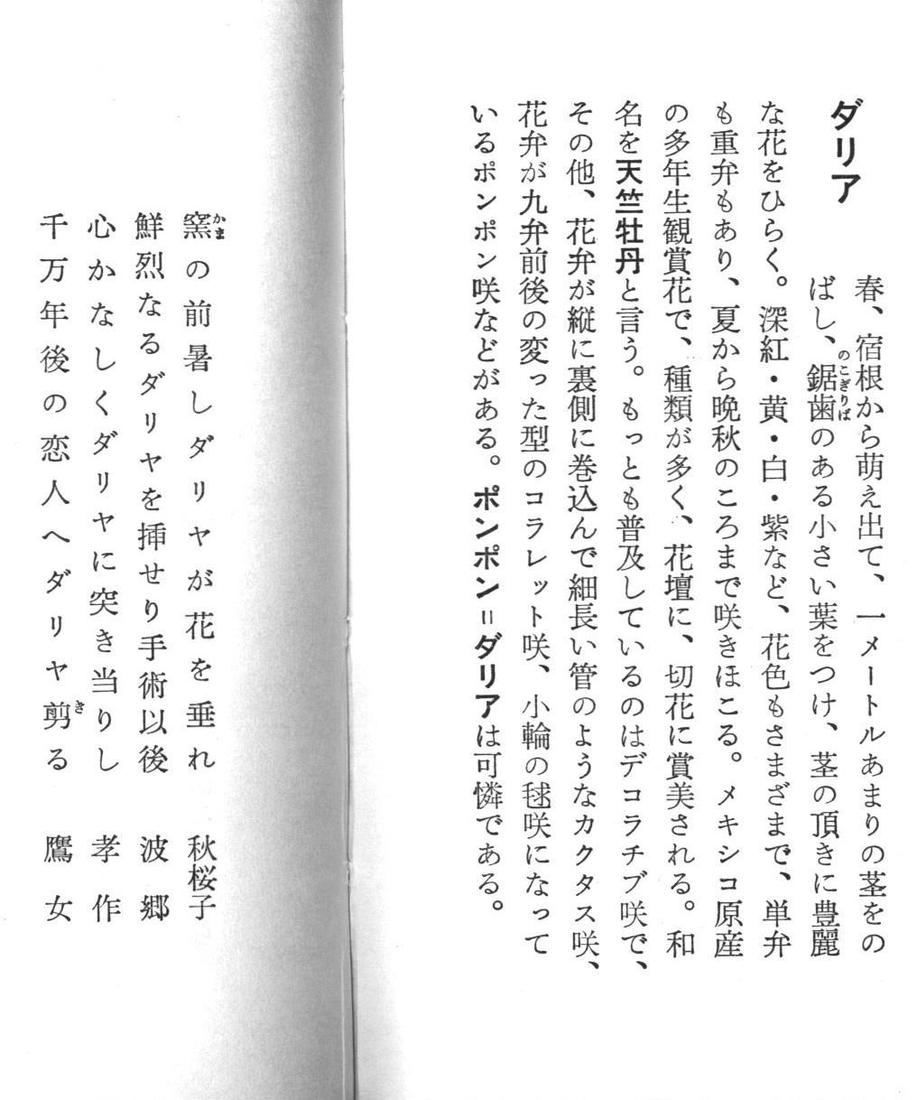 ダリア
春、宿根から萌え出て、一メートルあまりの茎をの
ばし、鋸歯のある小さい葉をつけ、茎の頂きに豊麗
のこぎりば
な花をひらく。深紅・黄・白・紫など、花色もさまざまで、単弁
も重弁もあり、夏から晩秋のころまで咲きほこる。メキシコ原産
の多年生観賞花で、種類が多く、花壇に、切花に賞美される。和
名を天竺牡丹と言う。もっとも普及しているのはデコラチブ咲で、
その他、花弁が縦に裏側に巻込んで細長い管のようなカクタス咲、
花弁が九弁前後の変った型のコラレット咲、小輪の毬咲になって
いるポンポン咲などがある。ポンポン＝ダリアは可憐である。
窯の前暑しダリヤが花を垂れ 秋桜子
かま
鮮烈なるダリヤを挿せり手術以後 波郷
心かなしくダリヤに突き当りし 孝作
千万年後の恋人へダリヤ剪る 鷹女
き